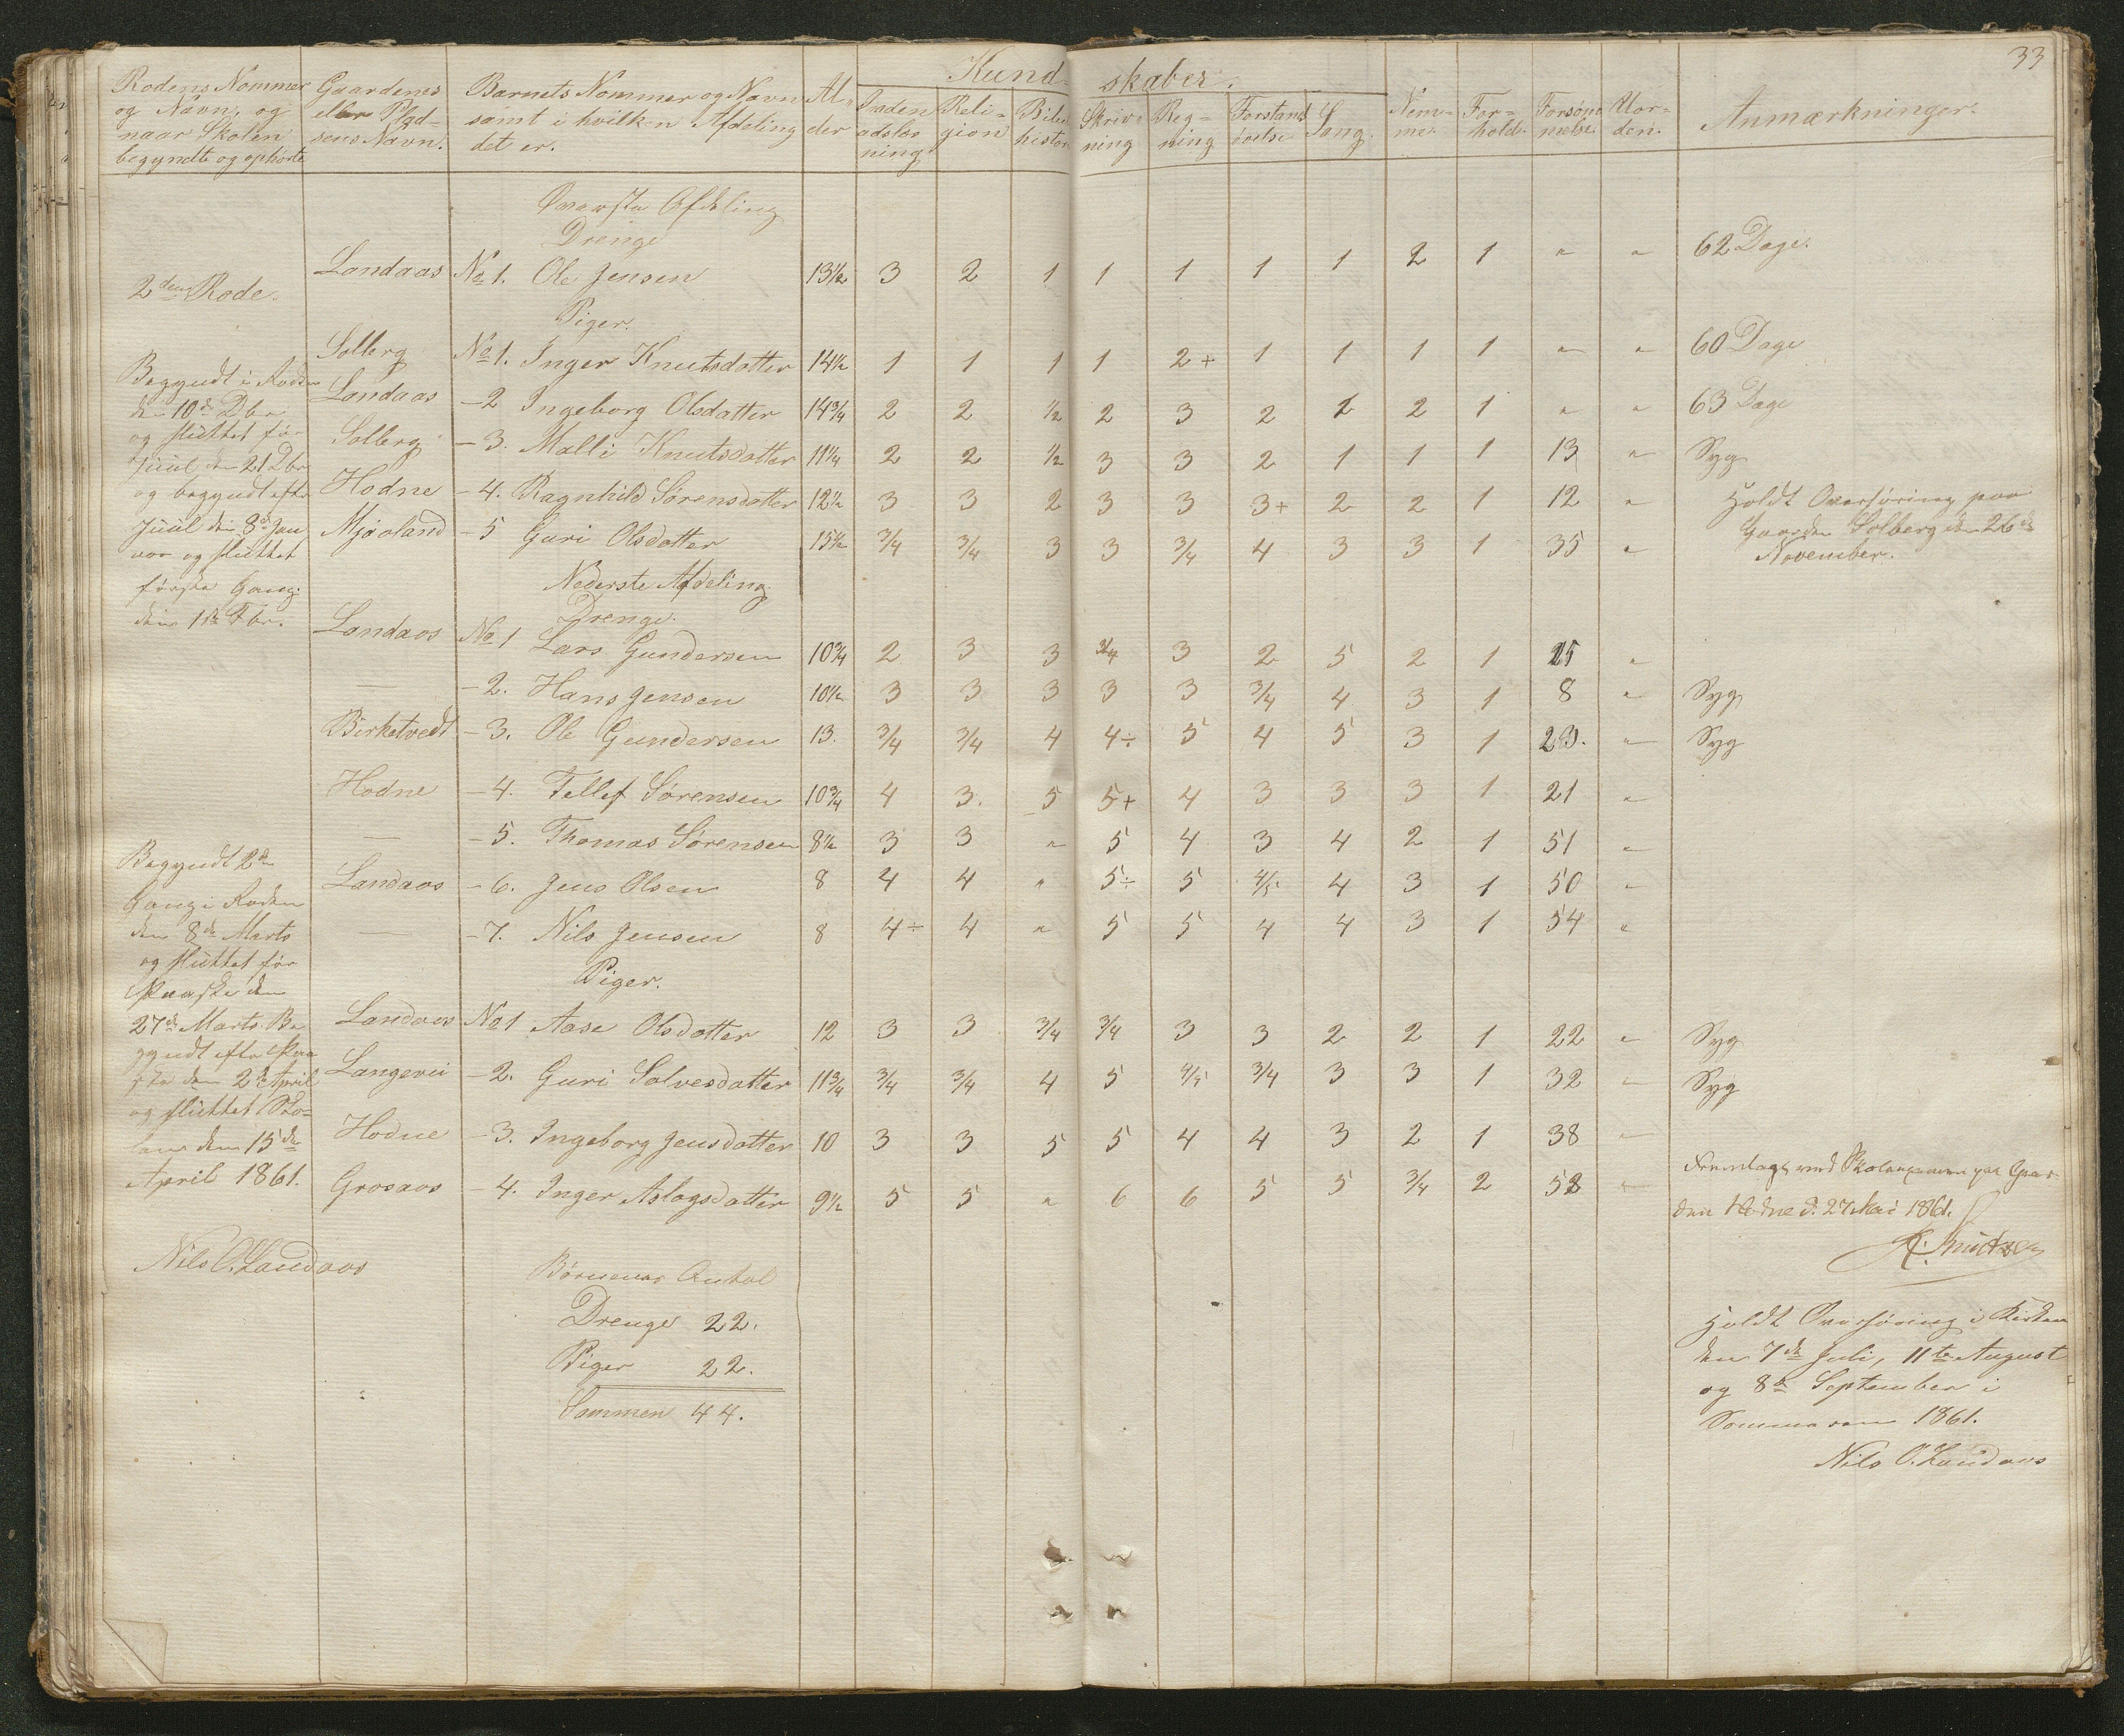 33
Kund- skaber.
Rodens Nommer og Navn, og naar Skolen begyndte og ophørte | Gaardenes eller Plad- sens Navn. | Barnets Nommer og Navn samt i hvilken Afdeling det er. | Al- der | Inden adslæs ning | Reli- gion | Bibel histor | Skriv- ning | Reg- ning | Forstands øvelse | Sang. | Nem- me. | For- hold. | Forsøm melse. | Uor- den. | Anmærkninger.
Øverste Afdeling
Drenge
2den Rode.
Landaas No 1. Ole Jensen 13½ 3 2 1 1 1 1 1 2 1 " " 62 Dage.
Piger.
Solberg No 1. Inger Knutsdatter 14½ 1 1 1 1 2+ 1 1 1 1 " " 60 Dage
Landaas - 2 Ingeborg Olsdatter 14¾ 2 2 ½ 2 3 2 2 2 1 " " 63 Dage
Solberg - 3. Malli Knutsdatter 11¼ 2 2 ½ 3 3 2 1 1 1 13 " Syg
Hodne - 4. Ragnhild Sørensdatter 12½ 3 3 2 3 3 3+ 2 2 1 12 "
Mjaaland - 5 Guri Olsdatter 15½ 3/4 3/4 3 3 3/4 4 3 3 1 35 "
Holdt Overhøring paa
Gaarden Solberg den 26de
November.
Begyndt i Roden
den 10de Dbr
og sluttet før
Juul den 21 Dbr
og begyndt efter
Juul den 8de Jan
uar og sluttet
første Gang
den 1ste Fbr.
Nederste Afdeling
Drenge.
Landaas No 1 Lars Gundersen 10¾ 2 3 3 3/4 3 2 5 2 1 25 "
— - 2. Hans Jensen 10½ 3 3 3 3 3 3/4 4 3 1 8 " Syg
Birketvedt - 3. Ole Gundersen 13. 3/4 3/4 4 4÷ 5 4 5 3 1 23. " Syg
Hodne - 4. Tellef Sørensen 10¾ 4 3. 5 5+ 4 3 3 3 1 21 "
— - 5. Thomas Sørensen 8½ 3 3 " 5 4 3 4 2 1 51 "
Landaas - 6. Jens Olsen 8 4 4 " 5÷ 5 4/5 4 3 1 50 "
— - 7. Nils Jensen 8 4÷ 4 " 5 5 4 4 3 1 54 "
Piger.
Landaas No 1 Aase Olsdatter 12 3 3 3/4 3/4 3 3 2 2 1 22 " Syg
Langevei - 2. Guri Solvesdatter 11¾ 3/4 3/4 4 5 4/5 3/4 3 3 1 32 " Syg
Hodne - 3. Ingeborg Jensdatter 10 3 3 5 5 4 4 3 2 1 38 "
Grosaas - 4. Inger Aslagsdatter 9½ 5 5 " 6 6 5 5 3/4 2 52 "
Begyndt 2den
Gang i Roden
den 8de Marts
og sluttet før
Paaske den
27de Marts. Be
gyndt efter Paa
ske den 2de April
og sluttet Sko-
len den 15de
April 1861.
Nils O. Landaas
Børnenes Antal
Drenge 22.
Piger 22.
Sammen 44.
Fremlagt ved Skoleexamen paa Gaar-
den Hodne d. 27 Mai 1861.
Holdt Overhøring i Kirken
den 7de Juli, 11te August
og 8de September i
Sommeren 1861.
Nils O. Landaas